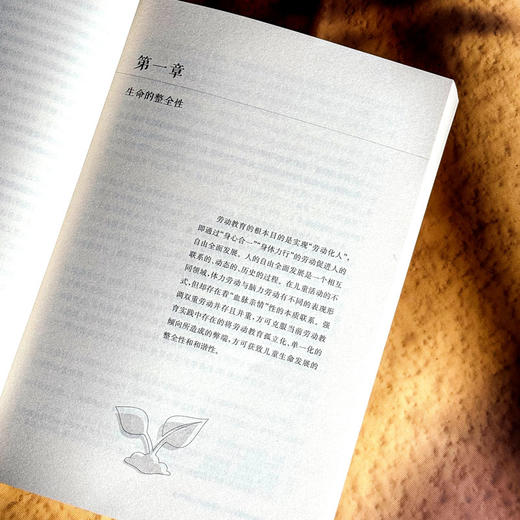 第一章
生命的整全性
劳动教育的根本目的是实现“劳动化人”，
即通过“身心合一”“身体力行”的劳动促进人的
自由全面发展。人的自由全面发展是一个相互
联系的、动态的、历史的过程。在儿童活动的不
同领域，体力劳动与脑力劳动有不同的表现形
式，但却存在着“血脉亲情”性的本质联系。强
调双重劳动并存且并重，方可克服当前劳动教
育实践中存在的将劳动教育孤立化、单一化的
倾向所造成的弊端，方可获致儿童生命发展的
整全性和和谐性。